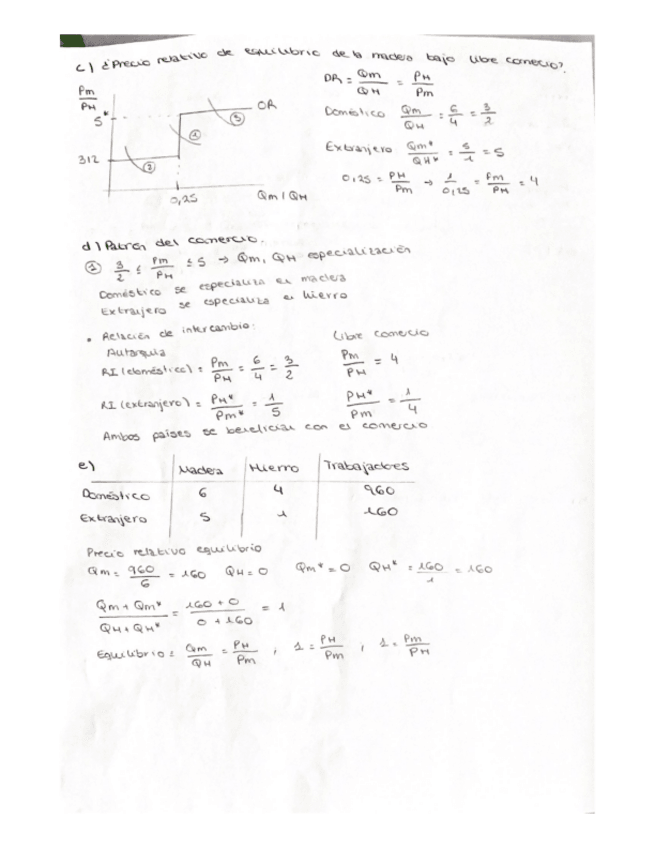 c) ¿Precio relativo de equilibrio de la madera bajo libre comercio?
Pm/PH
5*
3/2
0,25
Qm/QH
OR
1
2
3
DR = Qm/QH = PH/Pm
Doméstico Qm/QH = 6/4 = 3/2
Extranjero Qm*/QH* = 5/1 = 5
0,25 = PH/Pm → 1/0,25 = Pm/PH = 4
d) Patrón del comercio.
① 3/2 ≤ Pm/PH ≤ 5 → Qm, QH especialización
Doméstico se especializa en madera
Extranjero se especializa en hierro
• Relación de intercambio:
Autarquía
RI (doméstico) = Pm/PH = 6/4 = 3/2
RI (extranjero) = PH*/Pm* = 1/5
Libre comercio
Pm/PH = 4
PH*/Pm = 1/4
Ambos países se benefician con el comercio
e)
Madera Hierro Trabajadores
Doméstico 6 4 960
Extranjero 5 1 160
Precio relativo equilibrio
Qm = 960/6 = 160 QH = 0 Qm* = 0 QH* = 160/1 = 160
Qm + Qm*/QH + QH* = 160 + 0/0 + 160 = 1
Equilibrio = Qm/QH = PH/Pm , 1 = PH/Pm , 1 = Pm/PH